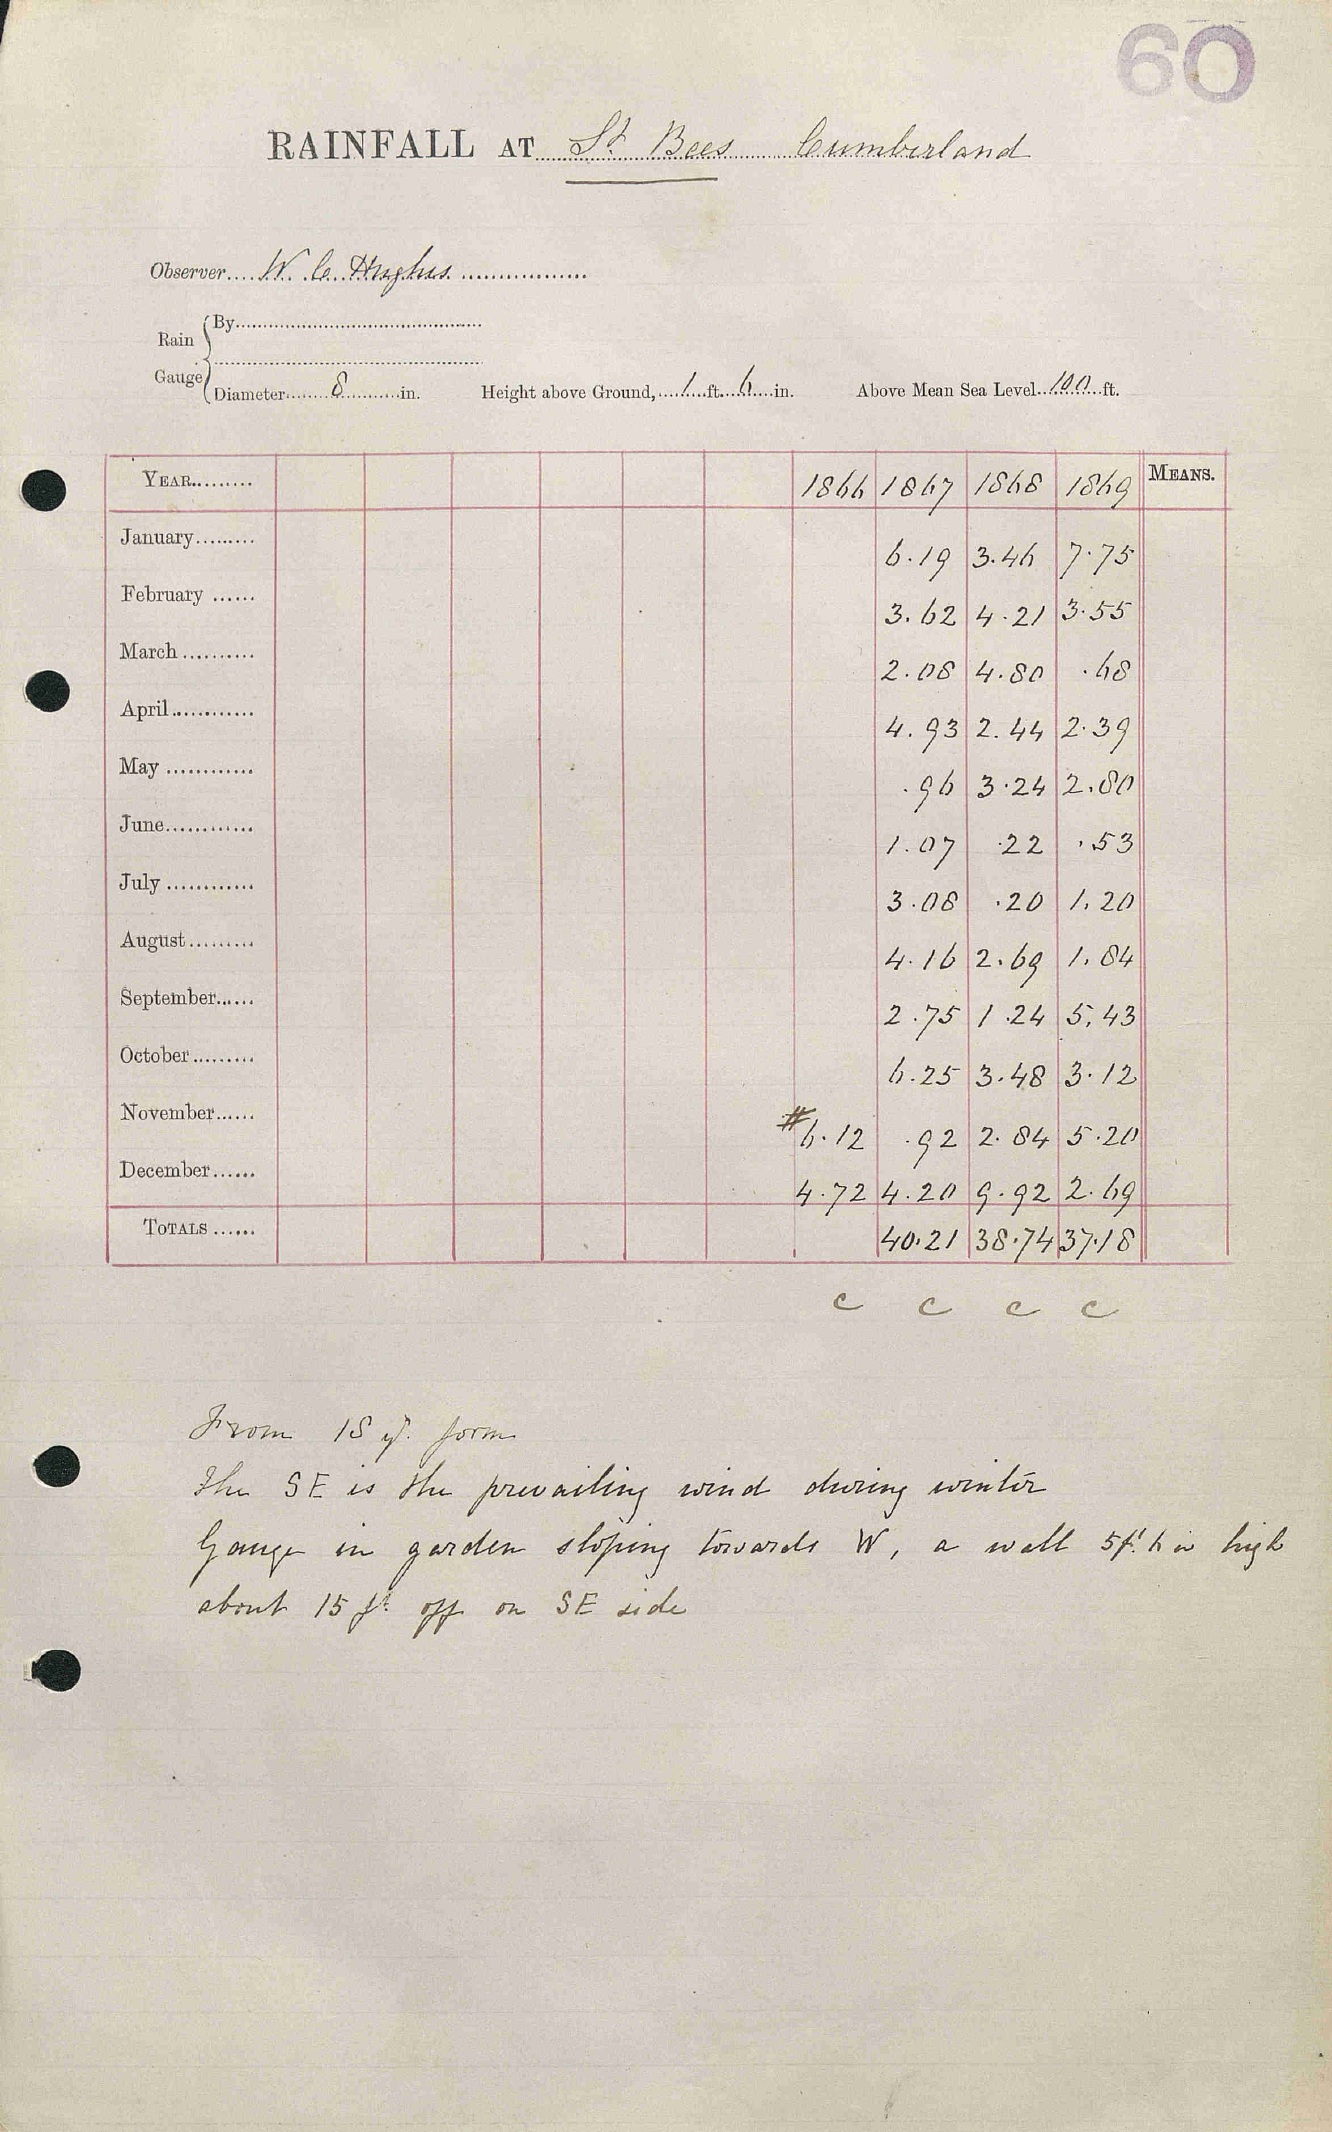 60
RAINFALL AT St Bees Cumberland
Observer W. C. Hughes
Rain Gauge
By
Diameter 8 in. Height above Ground, 1 ft. 6 in. Above Mean Sea Level 100 ft.
YEAR 1866 1867 1868 1869 MEANS.
January 6.19 3.46 7.75
February 3.62 4.21 3.55
March 2.08 4.80 .68
April 4.93 2.44 2.39
May .96 3.24 2.80
June 1.07 .22 .53
July 3.08 .20 1.20
August 4.16 2.69 1.84
September 2.75 1.24 5.43
October 6.25 3.48 3.12
November #6.12 .92 2.84 5.20
December 4.72 4.20 9.92 2.69
TOTALS 40.21 38.74 37.18
c c c c
From 18 form
The SE is the prevailing wind during winter
Gauge in garden sloping towards W, a wall 5ft. 6 in high
about 15 ft. off on SE side